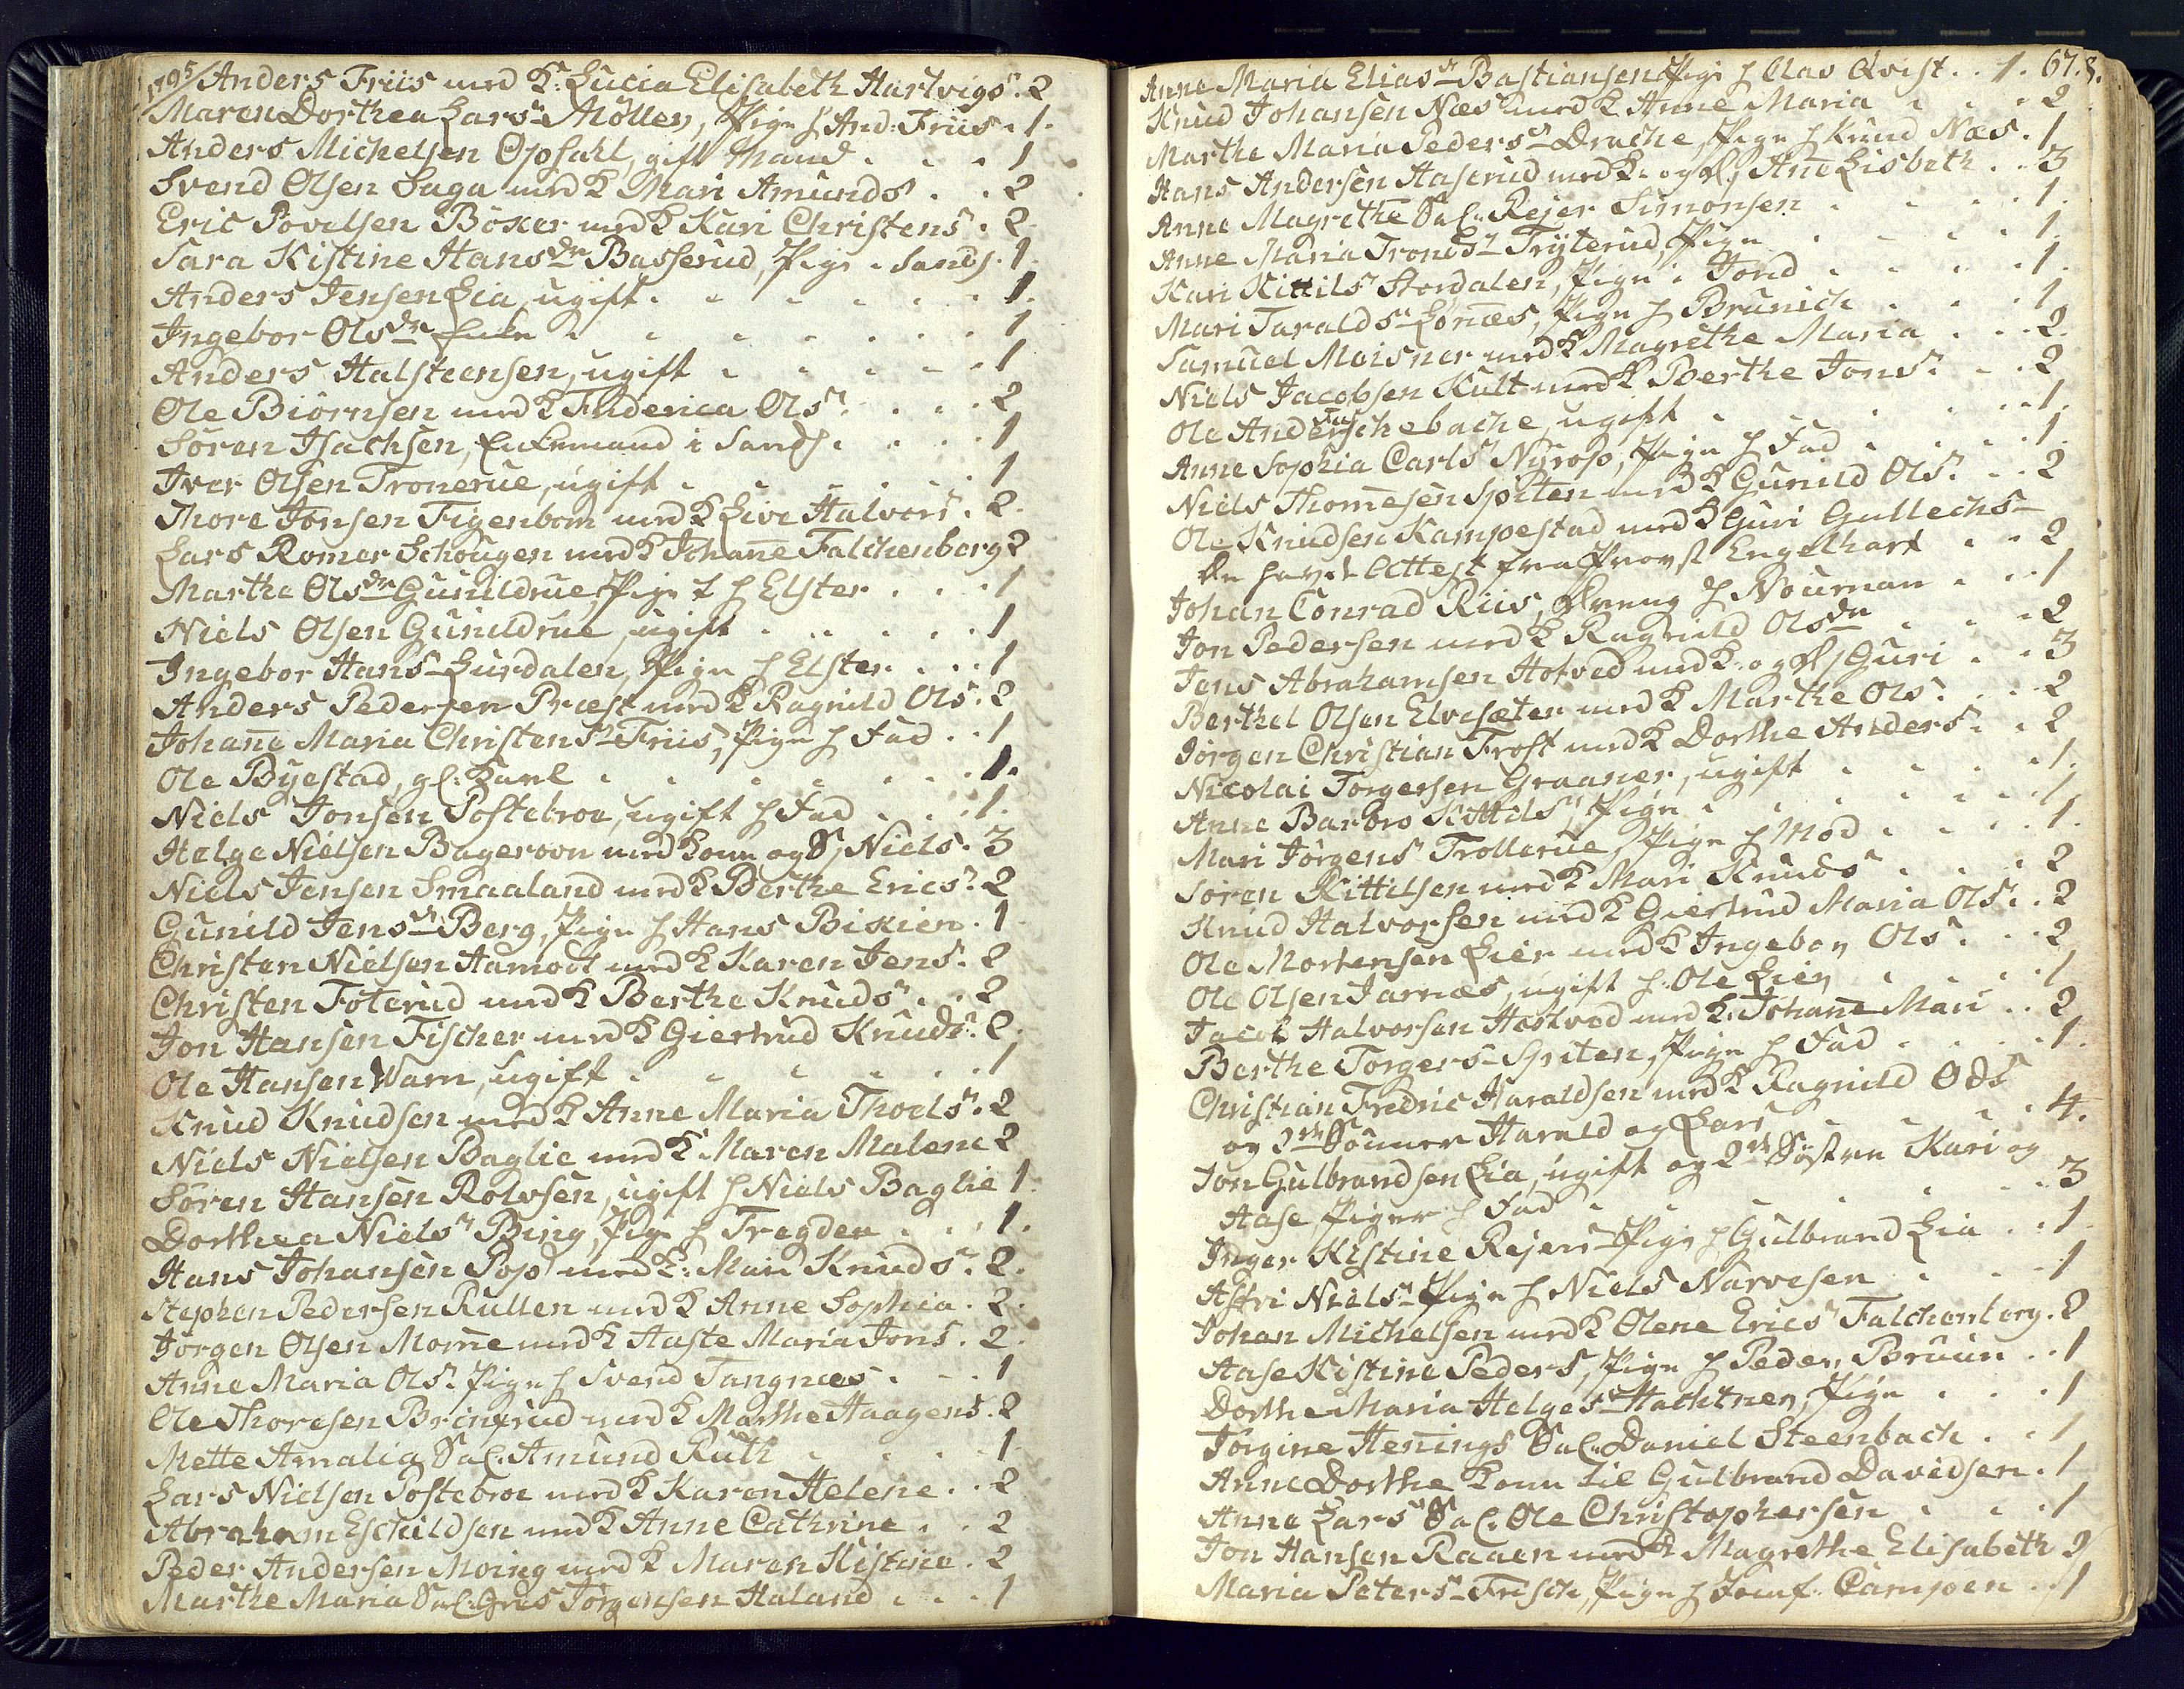 1795/ Anders Friis med K: Lucia Elisabeth Hartvigs. 2
Maren Dorthea Larsdr Möller, Pige h And: Friis. 1.
Anders Michelsen Opsahl, gift Mand . . . 1
Svend Olsen Saga med K Mari Amunds. . . 2
Eric Povelsen Böxer med K Kari Christens. 2
Sara Kistine Hansdr Basserud, Pige i Sands. 1
Anders Jensen Lia, ugift. . . . . . 1.
Ingebor Olsdr Enke . . . . . . 1
Anders Halsteensen, ugift . . . . . 1
Ole Biörnsen med K Friderica Ols. . . . 2
Sören Isachsen, Enkemand i Sands. . . . 1
Iver Olsen Tronerue, ugift . . . . . 1
Thore Jonsen Figenbom med K Live Halvors. 2.
Lars Romer Schougen med K Johanne Falchenberg 2
Marthe Olsdr Gunildrue, Pige h Elster . . . 1
Niels Olsen Gunildrue, ugift . . . . . 1
Ingebor Hansdr Lurdalen, Pige h Elster . . . 1
Anders Pedersen Præst med K Ragnild Ols. 2
Johanne Maria Christensdr Friis, Pige h Fad . . 1
Ole Byestad, gl. Karl . . . . . . 1.
Niels Jonsen Postebroe, ugift h Fad . . . 1.
Helge Nielsen Bagerovn med Kone og S, Niels. 3
Niels Jensen Smaaland med K Berthe Erics. 2
Gunild Jensdr Berg, Pige h Hans Bikien. 1
Christen Nielsen Aamodt med K Karen Jens. 2
Christen Foterud med K Berthe Knuds. . 2
Jon Hansen Fischer med K Giertrud Knuds. 2.
Ole Hansen Warn, ugift . . . . . 1
Knud Knudsen med K Anne Maria Thoels. 2
Niels Nielsen Baglie med K Maren Malene 2
Sören Hansen Rolvsen, ugift h Niels Baglie 1.
Dorthea Niels Bing, Pige h Tregden . . . 1.
Hans Johansen Pop med K. Mari Knuds. 2.
Stephen Pedersen Rullen med K Anne Sophia. 2.
Jörgen Olsen Morne med K Aaste Maria Jons. 2.
Anne Maria Ols. Pige h Svend Tangnæs . . . 1
Ole Thoresen Bringrud med K Marthe Haagens. 2
Mette Amalia Sal. Amund Ruth . . . 1
Lars Nielsen Postebroe med K Karen Helene . . 2
Abraham Eschildsen med K Anne Cathrine . . 2
Peder Andersen Moing med K Maren Kistine. 2
Marthe Maria Sal. Jörgensen Haland . . . 1
Anne Maria Eliasdr Bastiansen Pige h Clas Qvist. . 1. 67.8.
Knud Johansen Næs med K Anne Maria . . . 2.
Marthe Maria Pedersdr Drache, Pige h Knud Næs. 1
Hans Andersen Haserud med K. og D, Anne Lisbeth . . 3
Anne Magrethe Sal. Rejer Simonsen . . . . 1.
Anne Maria Tronds Tryterud, Pige . . . . 1.
Kari Kittils Stordalen, Pige i Jord . . . . 1
Mari Taralds Lonæs, Pige h Brunich . . . 1
Samuel Moisner med K Magrethe Maria . . . 2.
Niels Jacobsen Kult med K Berthe Jons. . . 2
Ole Andersen Schebache, ugift . . . . . 1.
Anne Sophia Carls Nyrop, Pige h Fad . . . 1.
Niels Thomesen Spiten med K Gunild Ols. . . 2
Ole Knudsen Kampestad med K Guri Gullechs-
de havde Attest fra Provst Engelhart . . 2
Johan Conrad Riis, Dreng h Nouman . . . 1
Jon Pedersen med K Ragnild Olsdr . . . 2
Jens Abrahamsen Hotved med K. og D, Guri . . 3
Berthel Olsen Elvesæter med K Marthe Ols. . . 2
Jörgen Christian Frost med K Dorthe Anders. . 2
Nicolai Torgersen Graaner, ugift . . . . 1.
Anne Barbro Kittils, Pige . . . . . 1
Mari Jörgens Trollerue, Pige h Mod . . . . 1.
Sören Kittilsen med K Mari Knuds . . . 2
Knud Halvorsen med K Giertrud Maria Ols. . 2
Ole Mortensen Lier med K Ingebor Ols. . . 2
Ole Olsen Jarnæs, ugift h. Ole Lier . . . 1
Jacob Halvorsen Hostved med K. Johanne Mari . . 2
Berthe Torgers Spiten, Pige h Fad . . . 1.
Christian Fredric Haraldsen med K Ragnild Ols
og 2de Sönner Harald og Lars . . . . 4.
Jon Gulbrandsen Lia, ugift og 2de Söstre Kari og
Aase Piger h Fad . . . . . . 3
Inger Kistine Rejers Pige h Gulbrand Lia . . 1
Astri Niels Pige h Niels Narvesen . . . 1
Johan Michelsen med K Olene Erics Falchenberg. 2
Aase Kistine Peders, Pige h Peder Bruun . . 1
Dorthe Maria Helges Hachtner, Pige . . . 1
Jörgine Hennings Sal. Daniel Steenbach . . 1
Anne Dorthe Kone til Gulbrand Davidsen. 1
Anne Lars Sal. Ole Christophersen . . . 1
Jon Hansen Raaen med K Magrethe Elisabeth 2
Maria Peters Frisch, Pige h Jomf. Campen . . 1